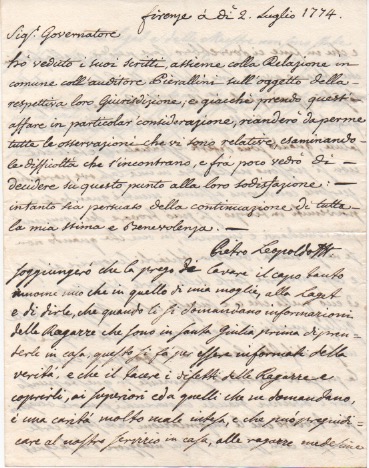 Firenze à dì 2. Luglio 1774.
Sig.r Governatore
Hò veduto i suoi scritti, assieme colla Relazione in
comune coll'auditore Pierallini sull'oggetto della
respettiva loro Giurisdizione, e giacchè prendo quest'
affare in particolar considerazione, rianderò da per me
tutte le osservazioni che vi sono relative, esaminando
le difficoltà che s'incontrano, e fra poco vedrò di
decidere su questo punto alla loro sodisfazione: —
intanto sia persuaso della continuazione di tutta
la mia stima e benevolenza. —
Pietro Leopoldo
Soggiungerò che la prego di lavare il capo tanto
a nome mio che in quello di mia moglie, alla
e di dirle, che quando le si domandano informazioni
delle Ragazze che sono in Santa Giulia prima di pren-
derle in casa, questo si fa per essere informati della
verità e che il tacere i difetti delle Ragazze e
coprirli, ai superiori ed a quelli che ne domandano,
è una carità molto male intesa, e che può pregiudi-
care al nostro servizio in casa, alle ragazze medesime